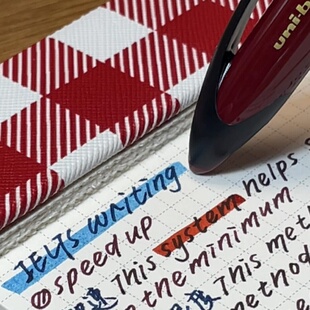 uni-b
IELTS writing
speed up
This system helps
the minimum
This me
method
me